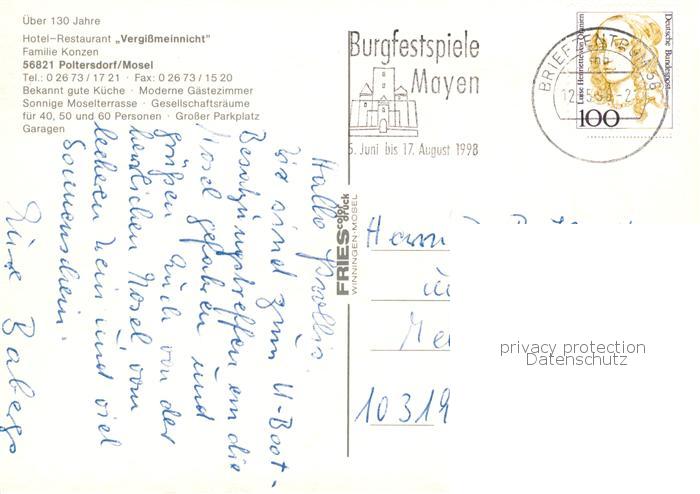 Über 130 Jahre
Hotel-Restaurant „Vergißmeinnicht"
Familie Konzen
56821 Poltersdorf/Mosel
Tel.: 0 26 73 / 17 21 · Fax: 0 26 73 / 15 20
Bekannt gute Küche · Moderne Gästezimmer
Sonnige Moselterrasse · Gesellschaftsräume
für 40, 50 und 60 Personen · Großer Parkplatz
Garagen
Burgfestspiele
Mayen
5. Juni bis 17. August 1998
BRIEFZENTRUM 56
Deutsche Bundespost
Luise Henriette von Oranien
100
FRIES color druck
WINNINGEN-MOSEL
Hallo
wir sind zum U-Boot-
Besatzungstreffen an die
Mosel gefahren und
grüßen Euch von der
herrlichen Mosel vom
leckeren Wein und viel
Sonnenschein.
Eure
Herrn
10319
privacy protection
Datenschutz